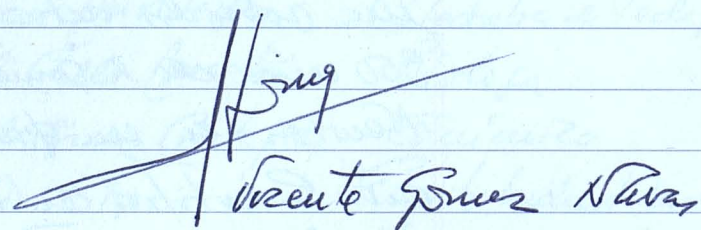 Vicente Gomez Navas